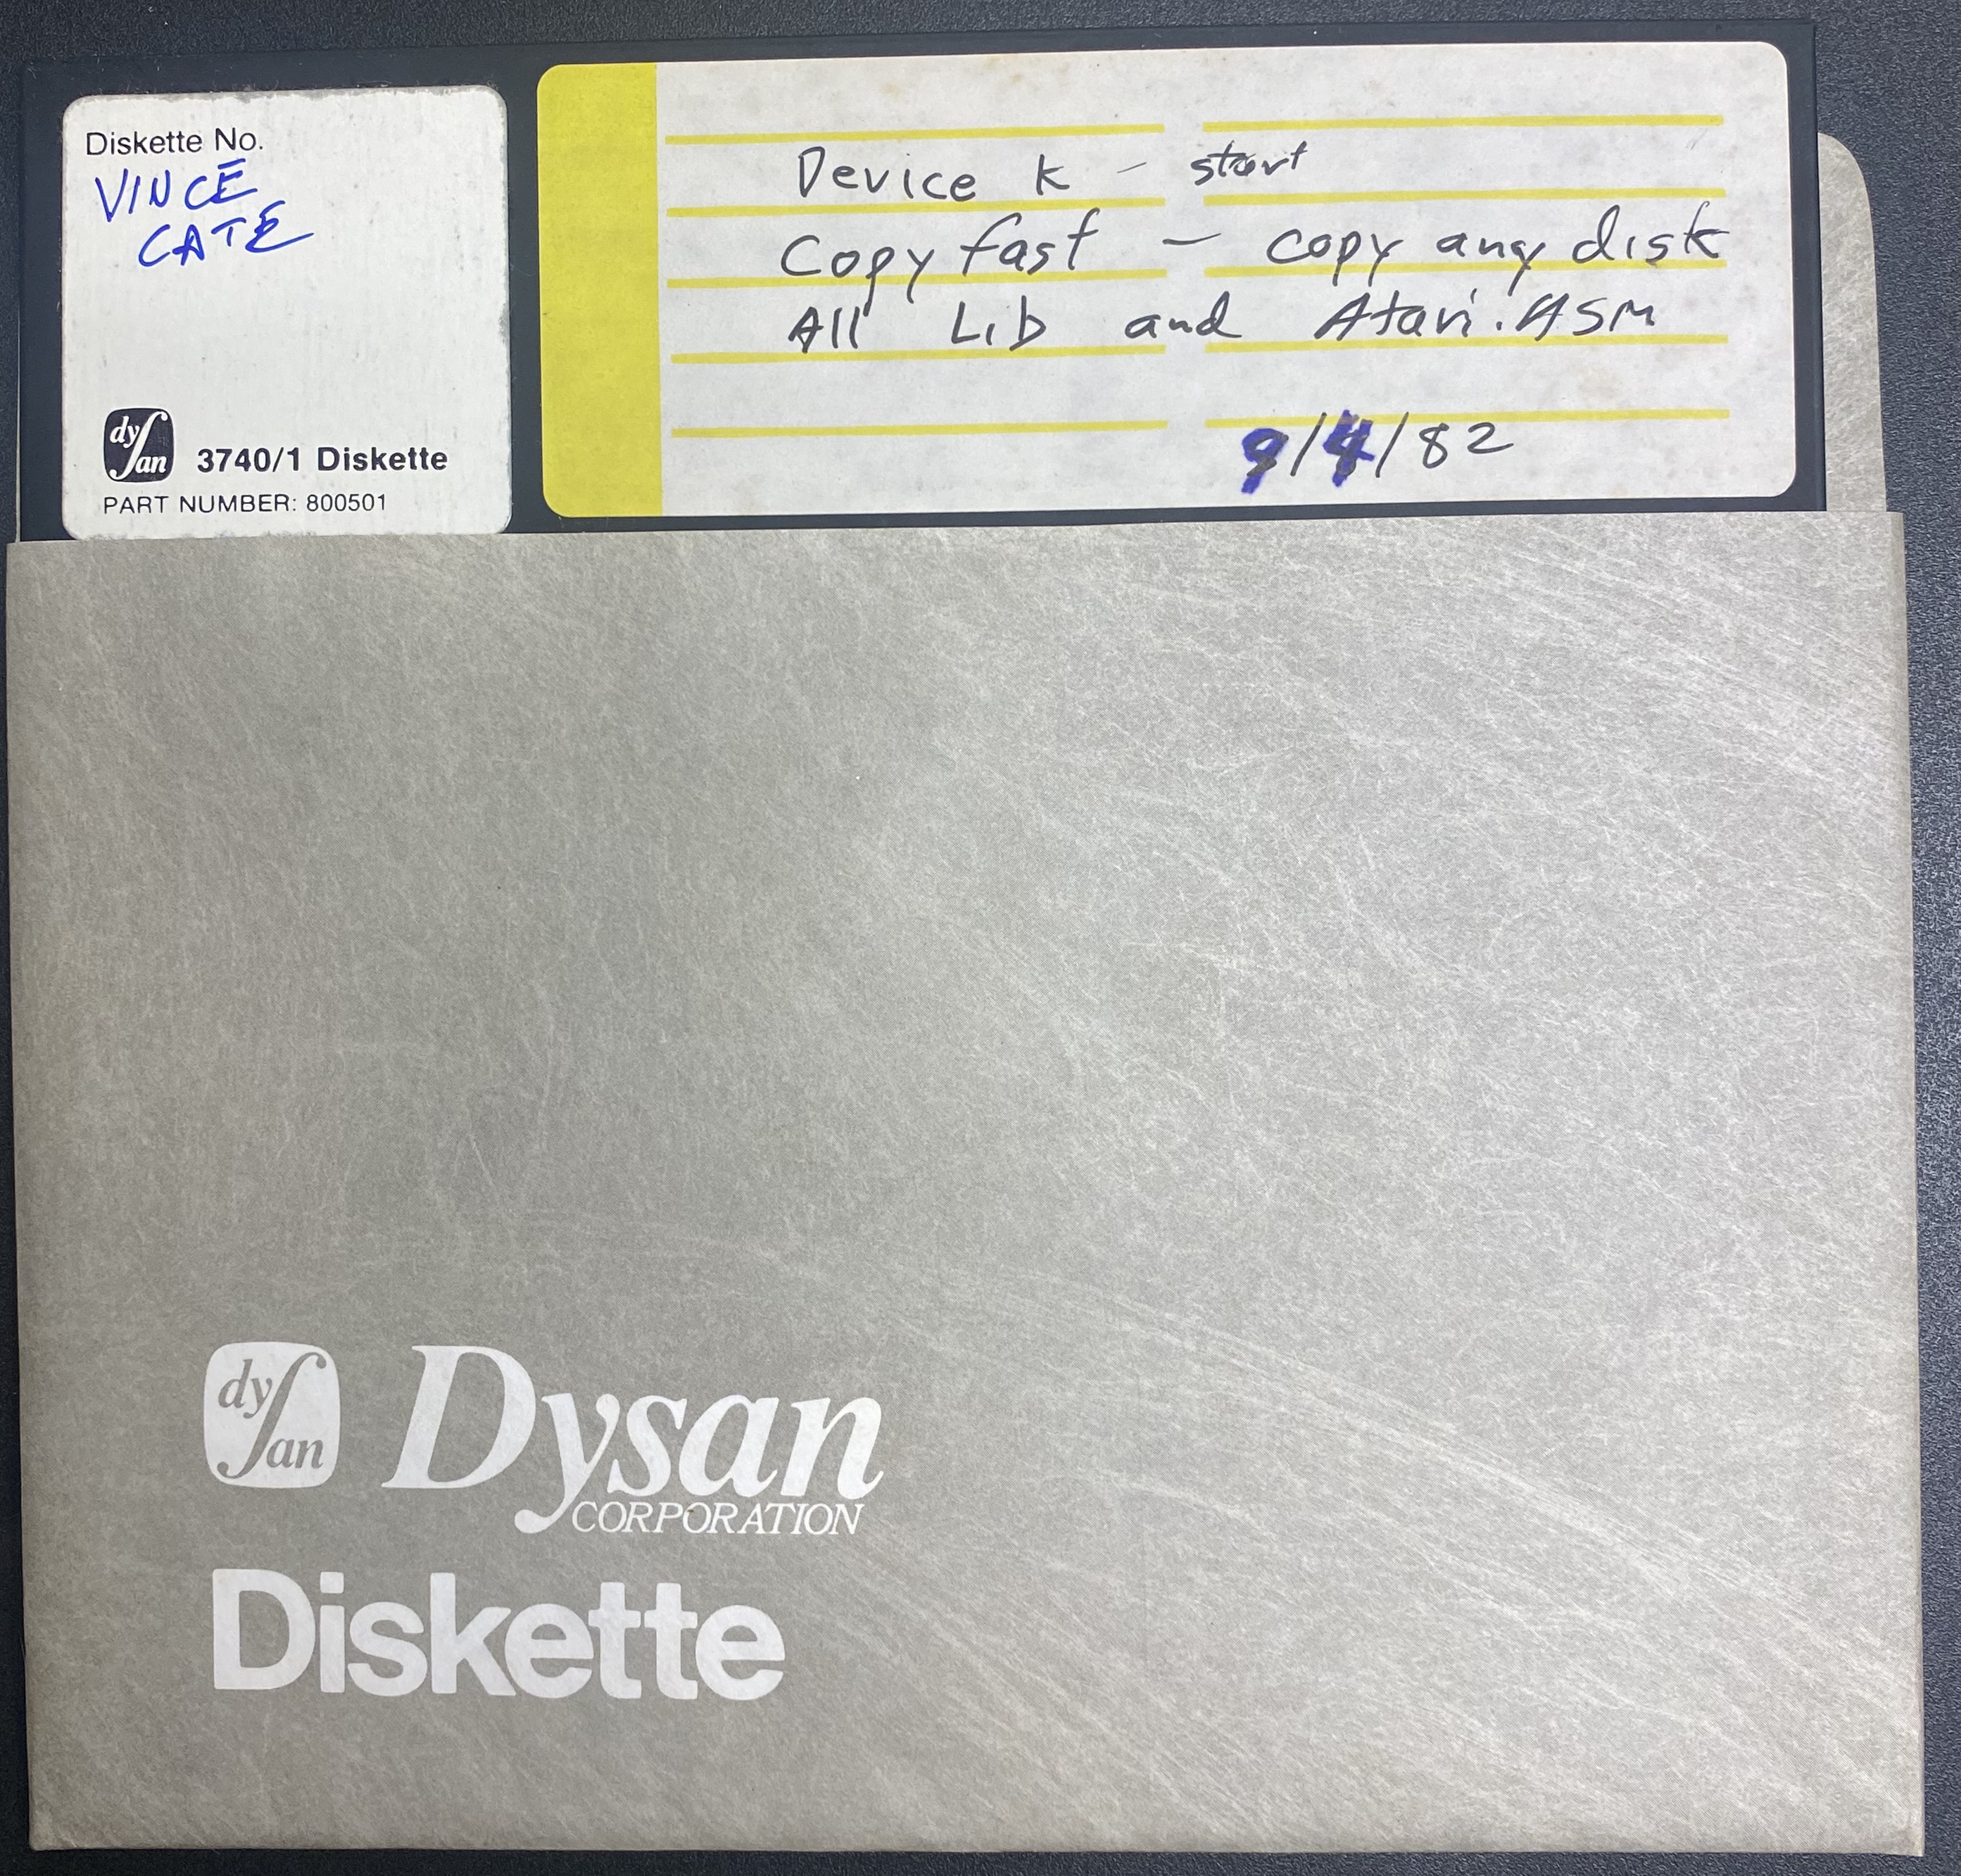 Diskette No.
VINCE
CATE
dysan 3740/1 Diskette
PART NUMBER: 800501
Device k - start
Copy fast - copy any disk
All Lib and Atari.ASM
9/4/82
dysan Dysan
CORPORATION
Diskette